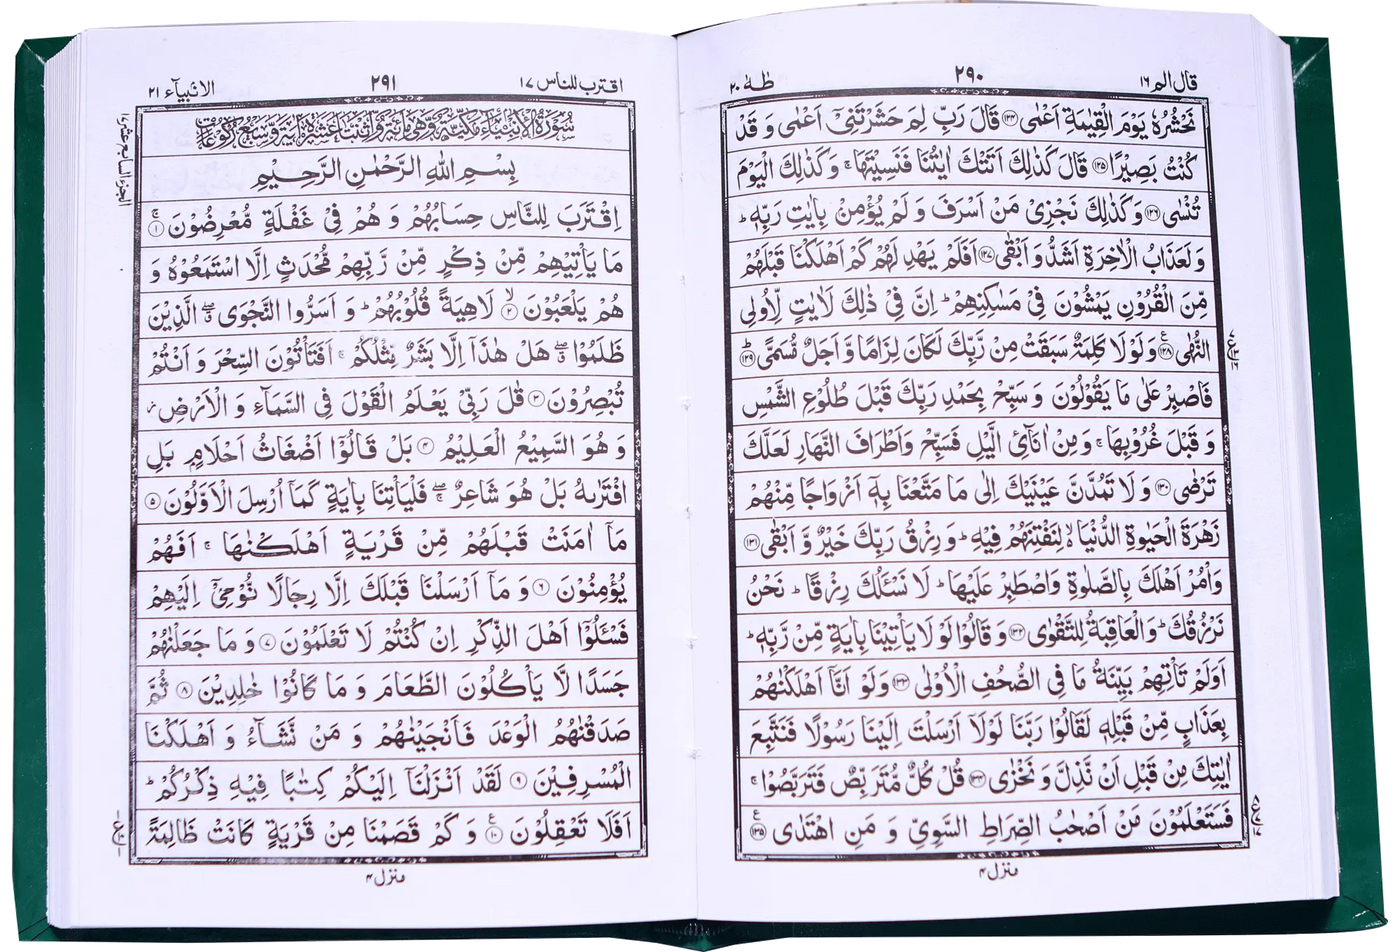 قال الم ١٦
٢٩٠
طٰهٰ ٢٠
نَحْشُرُهٗ يَوْمَ الْقِيٰمَةِ اَعْمٰى ﴿١٢٤﴾ قَالَ رَبِّ لِمَ حَشَرْتَنِيْۤ اَعْمٰى وَ قَدْ
كُنْتُ بَصِيْرًا ﴿١٢٥﴾ قَالَ كَذٰلِكَ اَتَتْكَ اٰيٰتُنَا فَنَسِيْتَهَا ۚ وَ كَذٰلِكَ الْيَوْمَ
تُنْسٰى ﴿١٢٦﴾ وَ كَذٰلِكَ نَجْزِيْ مَنْ اَسْرَفَ وَ لَمْ يُؤْمِنْۢ بِاٰيٰتِ رَبِّهٖ ؕ
وَ لَعَذَابُ الْاٰخِرَةِ اَشَدُّ وَ اَبْقٰى ﴿١٢٧﴾ اَفَلَمْ يَهْدِ لَهُمْ كَمْ اَهْلَكْنَا قَبْلَهُمْ
مِّنَ الْقُرُوْنِ يَمْشُوْنَ فِيْ مَسٰكِنِهِمْ ؕ اِنَّ فِيْ ذٰلِكَ لَاٰيٰتٍ لِّاُولِي
النُّهٰى ﴿١٢٨﴾ وَ لَوْ لَا كَلِمَةٌ سَبَقَتْ مِنْ رَّبِّكَ لَكَانَ لِزَامًا وَّ اَجَلٌ مُّسَمًّى ﴿١٢٩﴾
فَاصْبِرْ عَلٰى مَا يَقُوْلُوْنَ وَ سَبِّحْ بِحَمْدِ رَبِّكَ قَبْلَ طُلُوْعِ الشَّمْسِ
وَ قَبْلَ غُرُوْبِهَا ۚ وَ مِنْ اٰنَآئِ الَّيْلِ فَسَبِّحْ وَ اَطْرَافَ النَّهَارِ لَعَلَّكَ
تَرْضٰى ﴿١٣٠﴾ وَ لَا تَمُدَّنَّ عَيْنَيْكَ اِلٰى مَا مَتَّعْنَا بِهٖۤ اَزْوَاجًا مِّنْهُمْ
زَهْرَةَ الْحَيٰوةِ الدُّنْيَا ۙ لِنَفْتِنَهُمْ فِيْهِ ؕ وَ رِزْقُ رَبِّكَ خَيْرٌ وَّ اَبْقٰى ﴿١٣١﴾
وَ اْمُرْ اَهْلَكَ بِالصَّلٰوةِ وَ اصْطَبِرْ عَلَيْهَا ؕ لَا نَسْـَٔلُكَ رِزْقًا ؕ نَحْنُ
نَرْزُقُكَ ؕ وَ الْعَاقِبَةُ لِلتَّقْوٰى ﴿١٣٢﴾ وَ قَالُوْا لَوْ لَا يَاْتِيْنَا بِاٰيَةٍ مِّنْ رَّبِّهٖ ؕ
اَوَ لَمْ تَاْتِهِمْ بَيِّنَةُ مَا فِي الصُّحُفِ الْاُوْلٰى ﴿١٣٣﴾ وَ لَوْ اَنَّاۤ اَهْلَكْنٰهُمْ
بِعَذَابٍ مِّنْ قَبْلِهٖ لَقَالُوْا رَبَّنَا لَوْ لَاۤ اَرْسَلْتَ اِلَيْنَا رَسُوْلًا فَنَتَّبِعَ
اٰيٰتِكَ مِنْ قَبْلِ اَنْ نَّذِلَّ وَ نَخْزٰى ﴿١٣٤﴾ قُلْ كُلٌّ مُّتَرَبِّصٌ فَتَرَبَّصُوْا ۚ
فَسَتَعْلَمُوْنَ مَنْ اَصْحٰبُ الصِّرَاطِ السَّوِيِّ وَ مَنِ اهْتَدٰى ﴿١٣٥﴾
منزل ٤
اقترب للناس ١٧
٢٩١
الانبياء ٢١
سُوْرَةُ الْاَنْبِيَآءِ مَكِّيَّةٌ وَّهِيَ مِائَةٌ وَّاثْنَتَا عَشْرَةَ اٰيَةً وَّسَبْعُ رُكُوْعَاتٍ
بِسْمِ اللّٰهِ الرَّحْمٰنِ الرَّحِيْمِ
اِقْتَرَبَ لِلنَّاسِ حِسَابُهُمْ وَ هُمْ فِيْ غَفْلَةٍ مُّعْرِضُوْنَ ۚ﴿١﴾
مَا يَاْتِيْهِمْ مِّنْ ذِكْرٍ مِّنْ رَّبِّهِمْ مُّحْدَثٍ اِلَّا اسْتَمَعُوْهُ وَ
هُمْ يَلْعَبُوْنَ ۙ﴿٢﴾ لَاهِيَةً قُلُوْبُهُمْ ؕ وَ اَسَرُّوا النَّجْوَى ۖۗ الَّذِيْنَ
ظَلَمُوْا ۖۗ هَلْ هٰذَاۤ اِلَّا بَشَرٌ مِّثْلُكُمْ ۚ اَفَتَاْتُوْنَ السِّحْرَ وَ اَنْتُمْ
تُبْصِرُوْنَ ﴿٣﴾ قٰلَ رَبِّيْ يَعْلَمُ الْقَوْلَ فِي السَّمَآءِ وَ الْاَرْضِ ؗ
وَ هُوَ السَّمِيْعُ الْعَلِيْمُ ﴿٤﴾ بَلْ قَالُوْۤا اَضْغَاثُ اَحْلَامٍۭ بَلِ
افْتَرٰىهُ بَلْ هُوَ شَاعِرٌ ۖۚ فَلْيَاْتِنَا بِاٰيَةٍ كَمَاۤ اُرْسِلَ الْاَوَّلُوْنَ ﴿٥﴾
مَاۤ اٰمَنَتْ قَبْلَهُمْ مِّنْ قَرْيَةٍ اَهْلَكْنٰهَا ۚ اَفَهُمْ
يُؤْمِنُوْنَ ﴿٦﴾ وَ مَاۤ اَرْسَلْنَا قَبْلَكَ اِلَّا رِجَالًا نُّوْحِيْۤ اِلَيْهِمْ
فَسْـَٔلُوْۤا اَهْلَ الذِّكْرِ اِنْ كُنْتُمْ لَا تَعْلَمُوْنَ ﴿٧﴾ وَ مَا جَعَلْنٰهُمْ
جَسَدًا لَّا يَاْكُلُوْنَ الطَّعَامَ وَ مَا كَانُوْا خٰلِدِيْنَ ﴿٨﴾ ثُمَّ
صَدَقْنٰهُمُ الْوَعْدَ فَاَنْجَيْنٰهُمْ وَ مَنْ نَّشَآءُ وَ اَهْلَكْنَا
الْمُسْرِفِيْنَ ﴿٩﴾ لَقَدْ اَنْزَلْنَاۤ اِلَيْكُمْ كِتٰبًا فِيْهِ ذِكْرُكُمْ ؕ
اَفَلَا تَعْقِلُوْنَ ﴿١٠﴾ وَ كَمْ قَصَمْنَا مِنْ قَرْيَةٍ كَانَتْ ظَالِمَةً
الجزء السابع عشر
منزل ٤